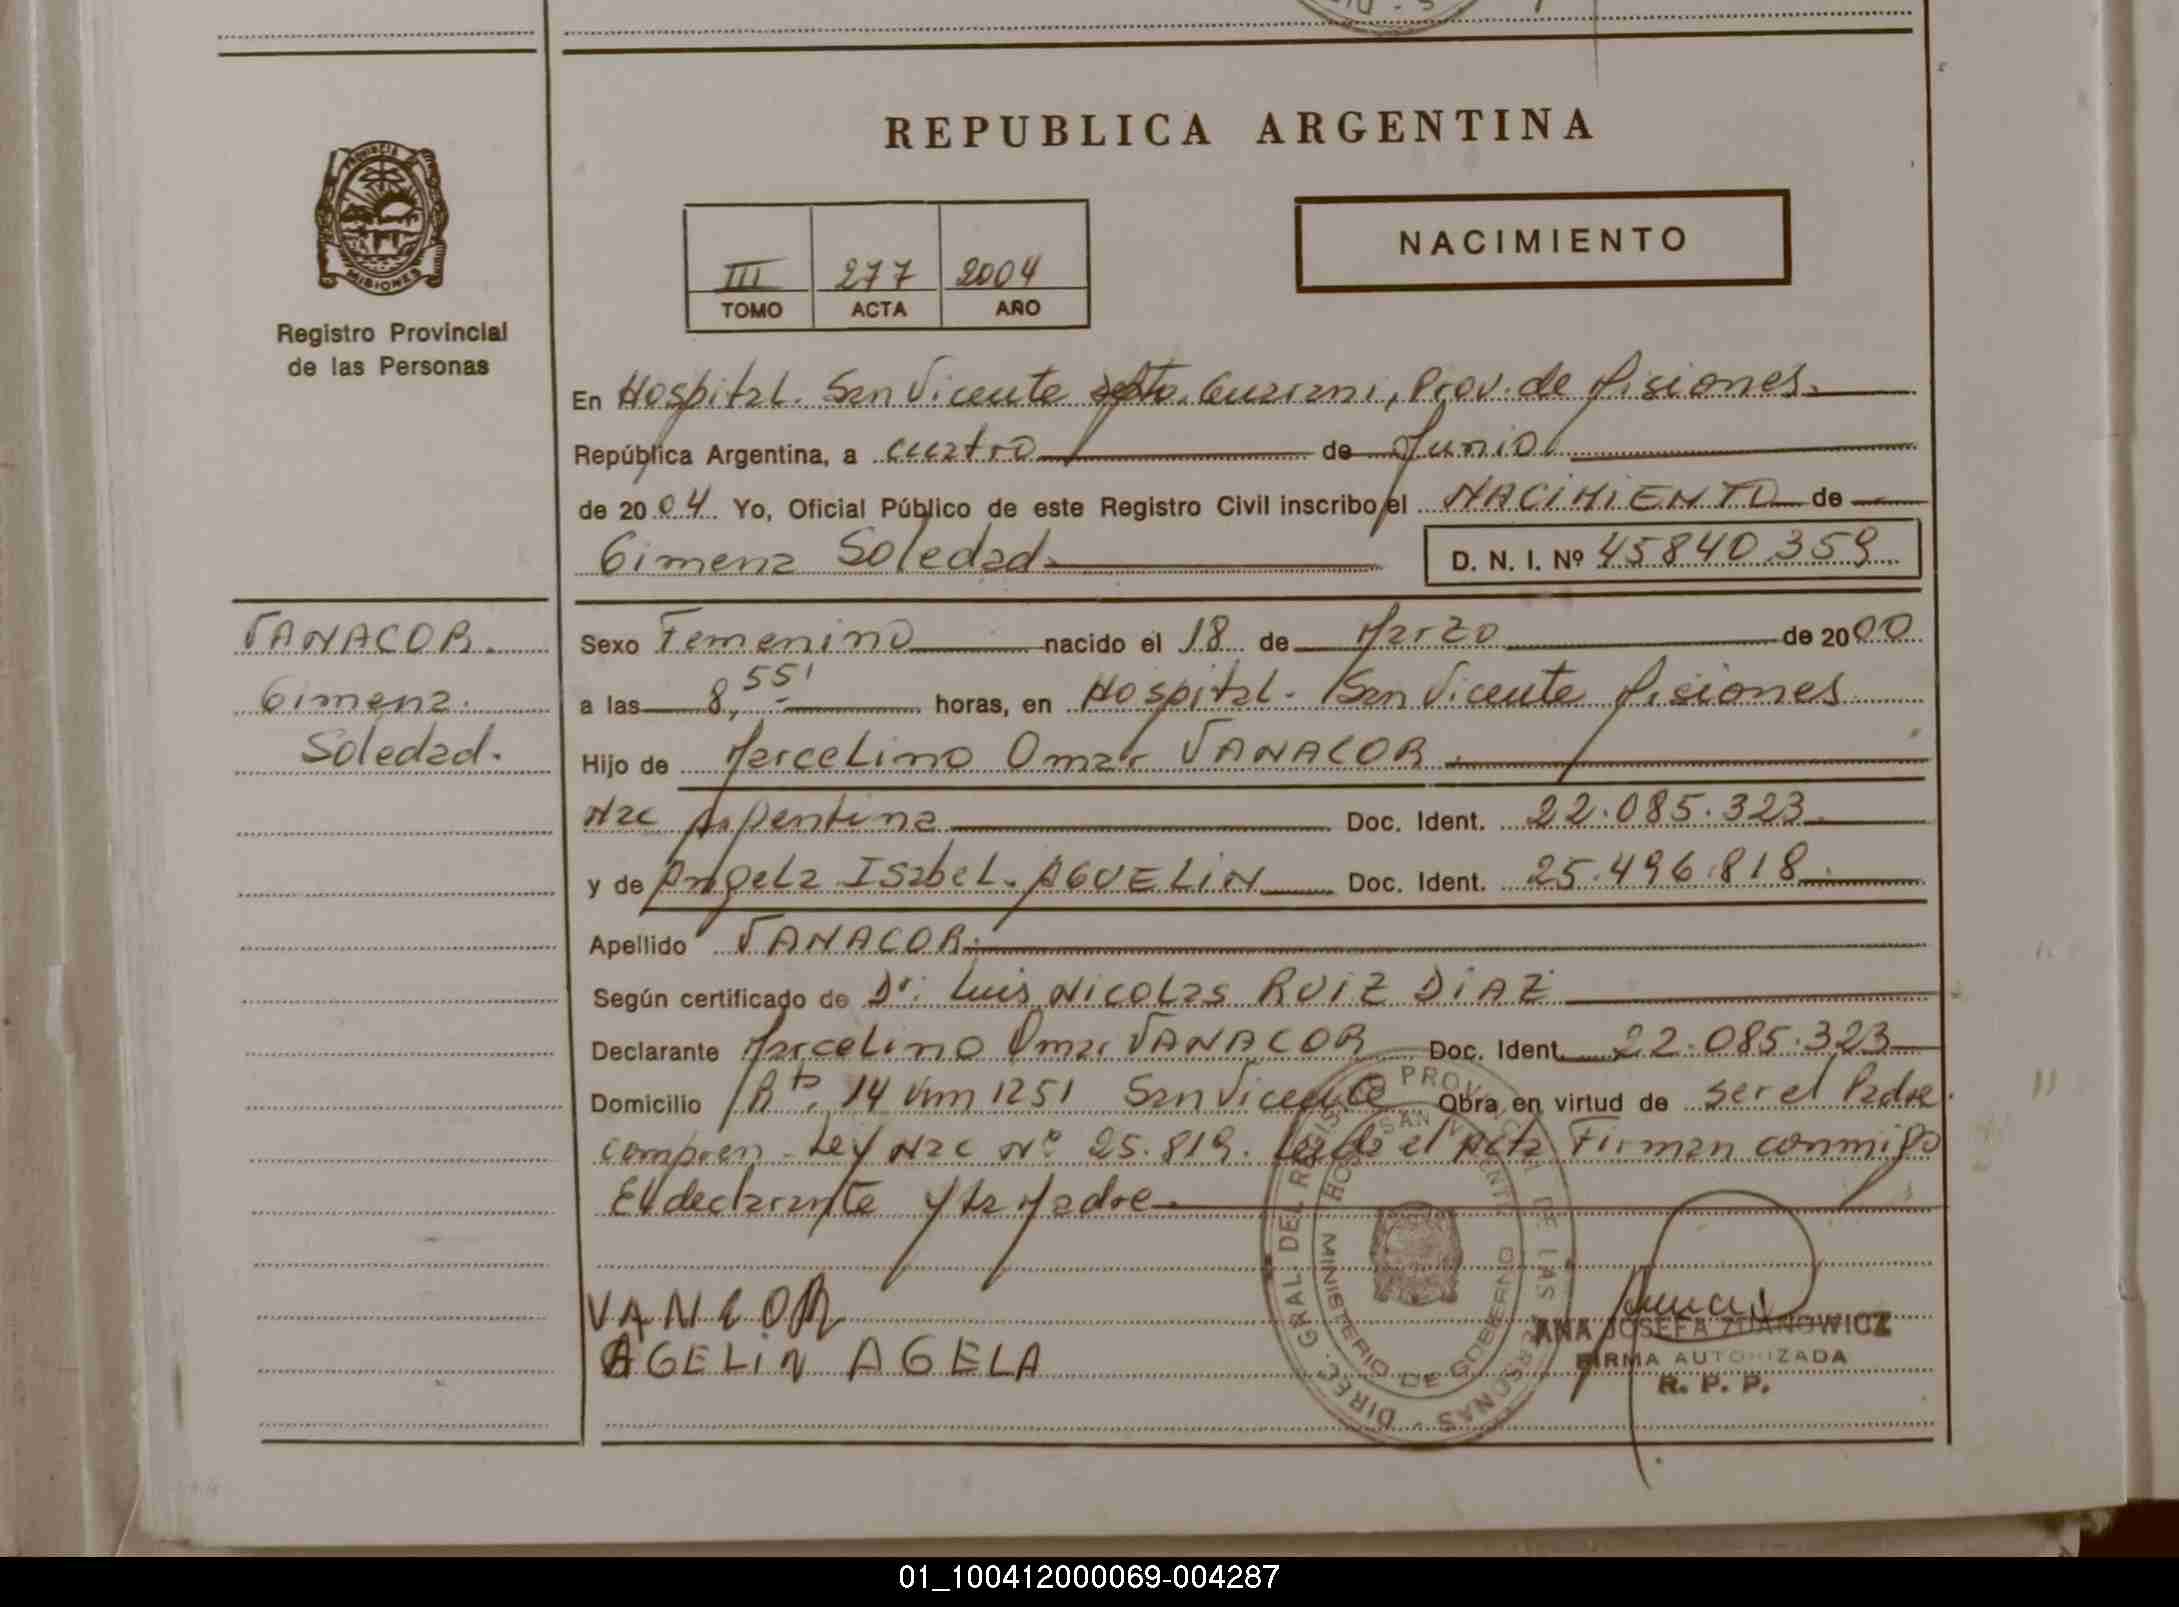 REPUBLICA ARGENTINA
PROVINCIA DE
MISIONES
Registro Provincial
de las Personas
III 277 2004
TOMO ACTA AÑO
NACIMIENTO
En Hospital. San Vicente Dpto. Guarani, Prov. de Misiones.
República Argentina, a cuatro de Junio
de 2004 Yo, Oficial Público de este Registro Civil inscribo el NACIMIENTO de
Gimena Soledad
D. N. I. Nº 45840359
VANACOR.
Gimena.
Soledad.
Sexo Femenino nacido el 18 de Marzo de 2000
a las 8,55' horas, en Hospital. San Vicente Misiones
Hijo de Marcelino Omar VANACOR.
Nac Argentina Doc. Ident. 22.085.323
y de Angela Isabel. AGUELIN Doc. Ident. 25.496.818
Apellido VANACOR.
Según certificado de Dr. Luis Nicolas RUIZ DIAZ
Declarante Marcelino Omar VANACOR Doc. Ident. 22.085.323
Domicilio Rta. 14 Km 1251 San Vicente Obra en virtud de ser el Padre.
compren. Ley Nac Nº 25.819. Leida el Acta Firman conmigo
El declarante y la Madre
VANCOR
AGELIN AGELA
DIREC. GRAL. DEL REGIS PROVINCIAL DE LAS PERSONAS
HOSP SAN VICENTE
MINISTERIO DE GOBIERNO
ANA JOSEFA ZDANOWICZ
FIRMA AUTORIZADA
R. P. P.
01_100412000069-004287